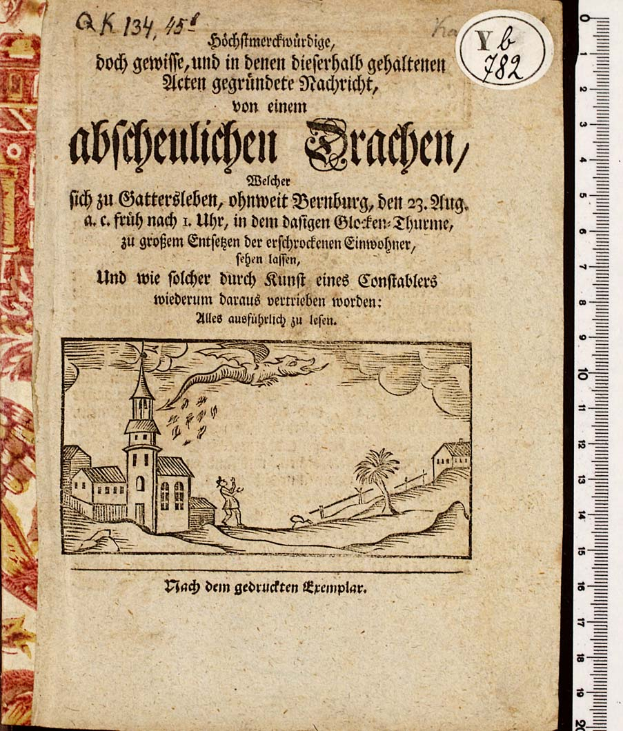 QK 134, 45⁸
Y b
782
Höchstmerckwürdige,
doch gewisse, und in denen dieserhalb gehaltenen
Acten gegründete Nachricht,
von einem
abscheulichen Drachen,
Welcher
sich zu Gattersleben, ohnweit Bernburg, den 23. Aug.
a. c. früh nach 1. Uhr, in dem dasigen Glocken-Thurme,
zu großem Entsetzen der erschrockenen Einwohner,
sehen lassen,
Und wie solcher durch Kunst eines Constablers
wiederum daraus vertrieben worden:
Alles ausführlich zu lesen.
Nach dem gedruckten Exemplar.
0
1
2
3
4
5
6
7
8
9
10
11
12
13
14
15
16
17
18
19
20